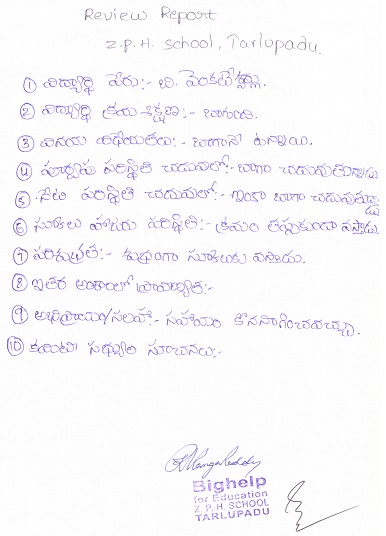 Review Report
Z.P.H. School, Tarlupadu.
① విద్యార్థి పేరు:- బి. వెంకటేశ్వర్లు.
② విద్యార్థి క్రమశిక్షణ:- బాగుంది.
③ వినయ విధేయతలు:- బాగానే ఉన్నాయి.
④ పూర్వపు పరిస్థితి చదువులో:- బాగా చదువుతున్నాడు
⑤ నేటి పరిస్థితి చదువులో:- ఇంకా బాగా చదువుతున్నాడు
⑥ స్కూలు హాజరు పరిస్థితి:- క్రమం తప్పకుండా వస్తాడు.
⑦ పరిశుభ్రత:- శుభ్రంగా స్కూలుకు వస్తాడు.
⑧ ఇతర అంశాలలో ప్రావీణ్యత:-
⑨ అభిప్రాయం/సలహా:- సహాయం కొనసాగించవచ్చు.
⑩ కమిటి సభ్యుల సూచనలు:-
Bighelp
for Education
Z. P. H. SCHOOL
TARLUPADU